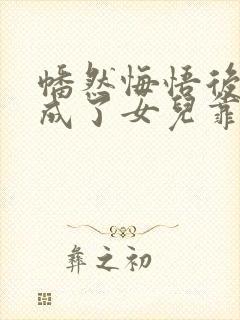 幡然悔悟後
成了女兒靠
彝之初